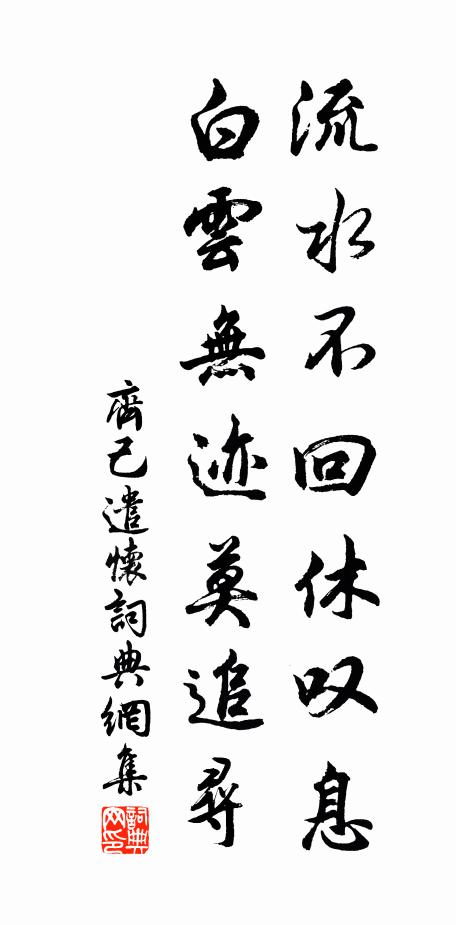 流水不回休叹息
白雲無迹莫追尋
齊己遣懷詞典網集
詞典网印